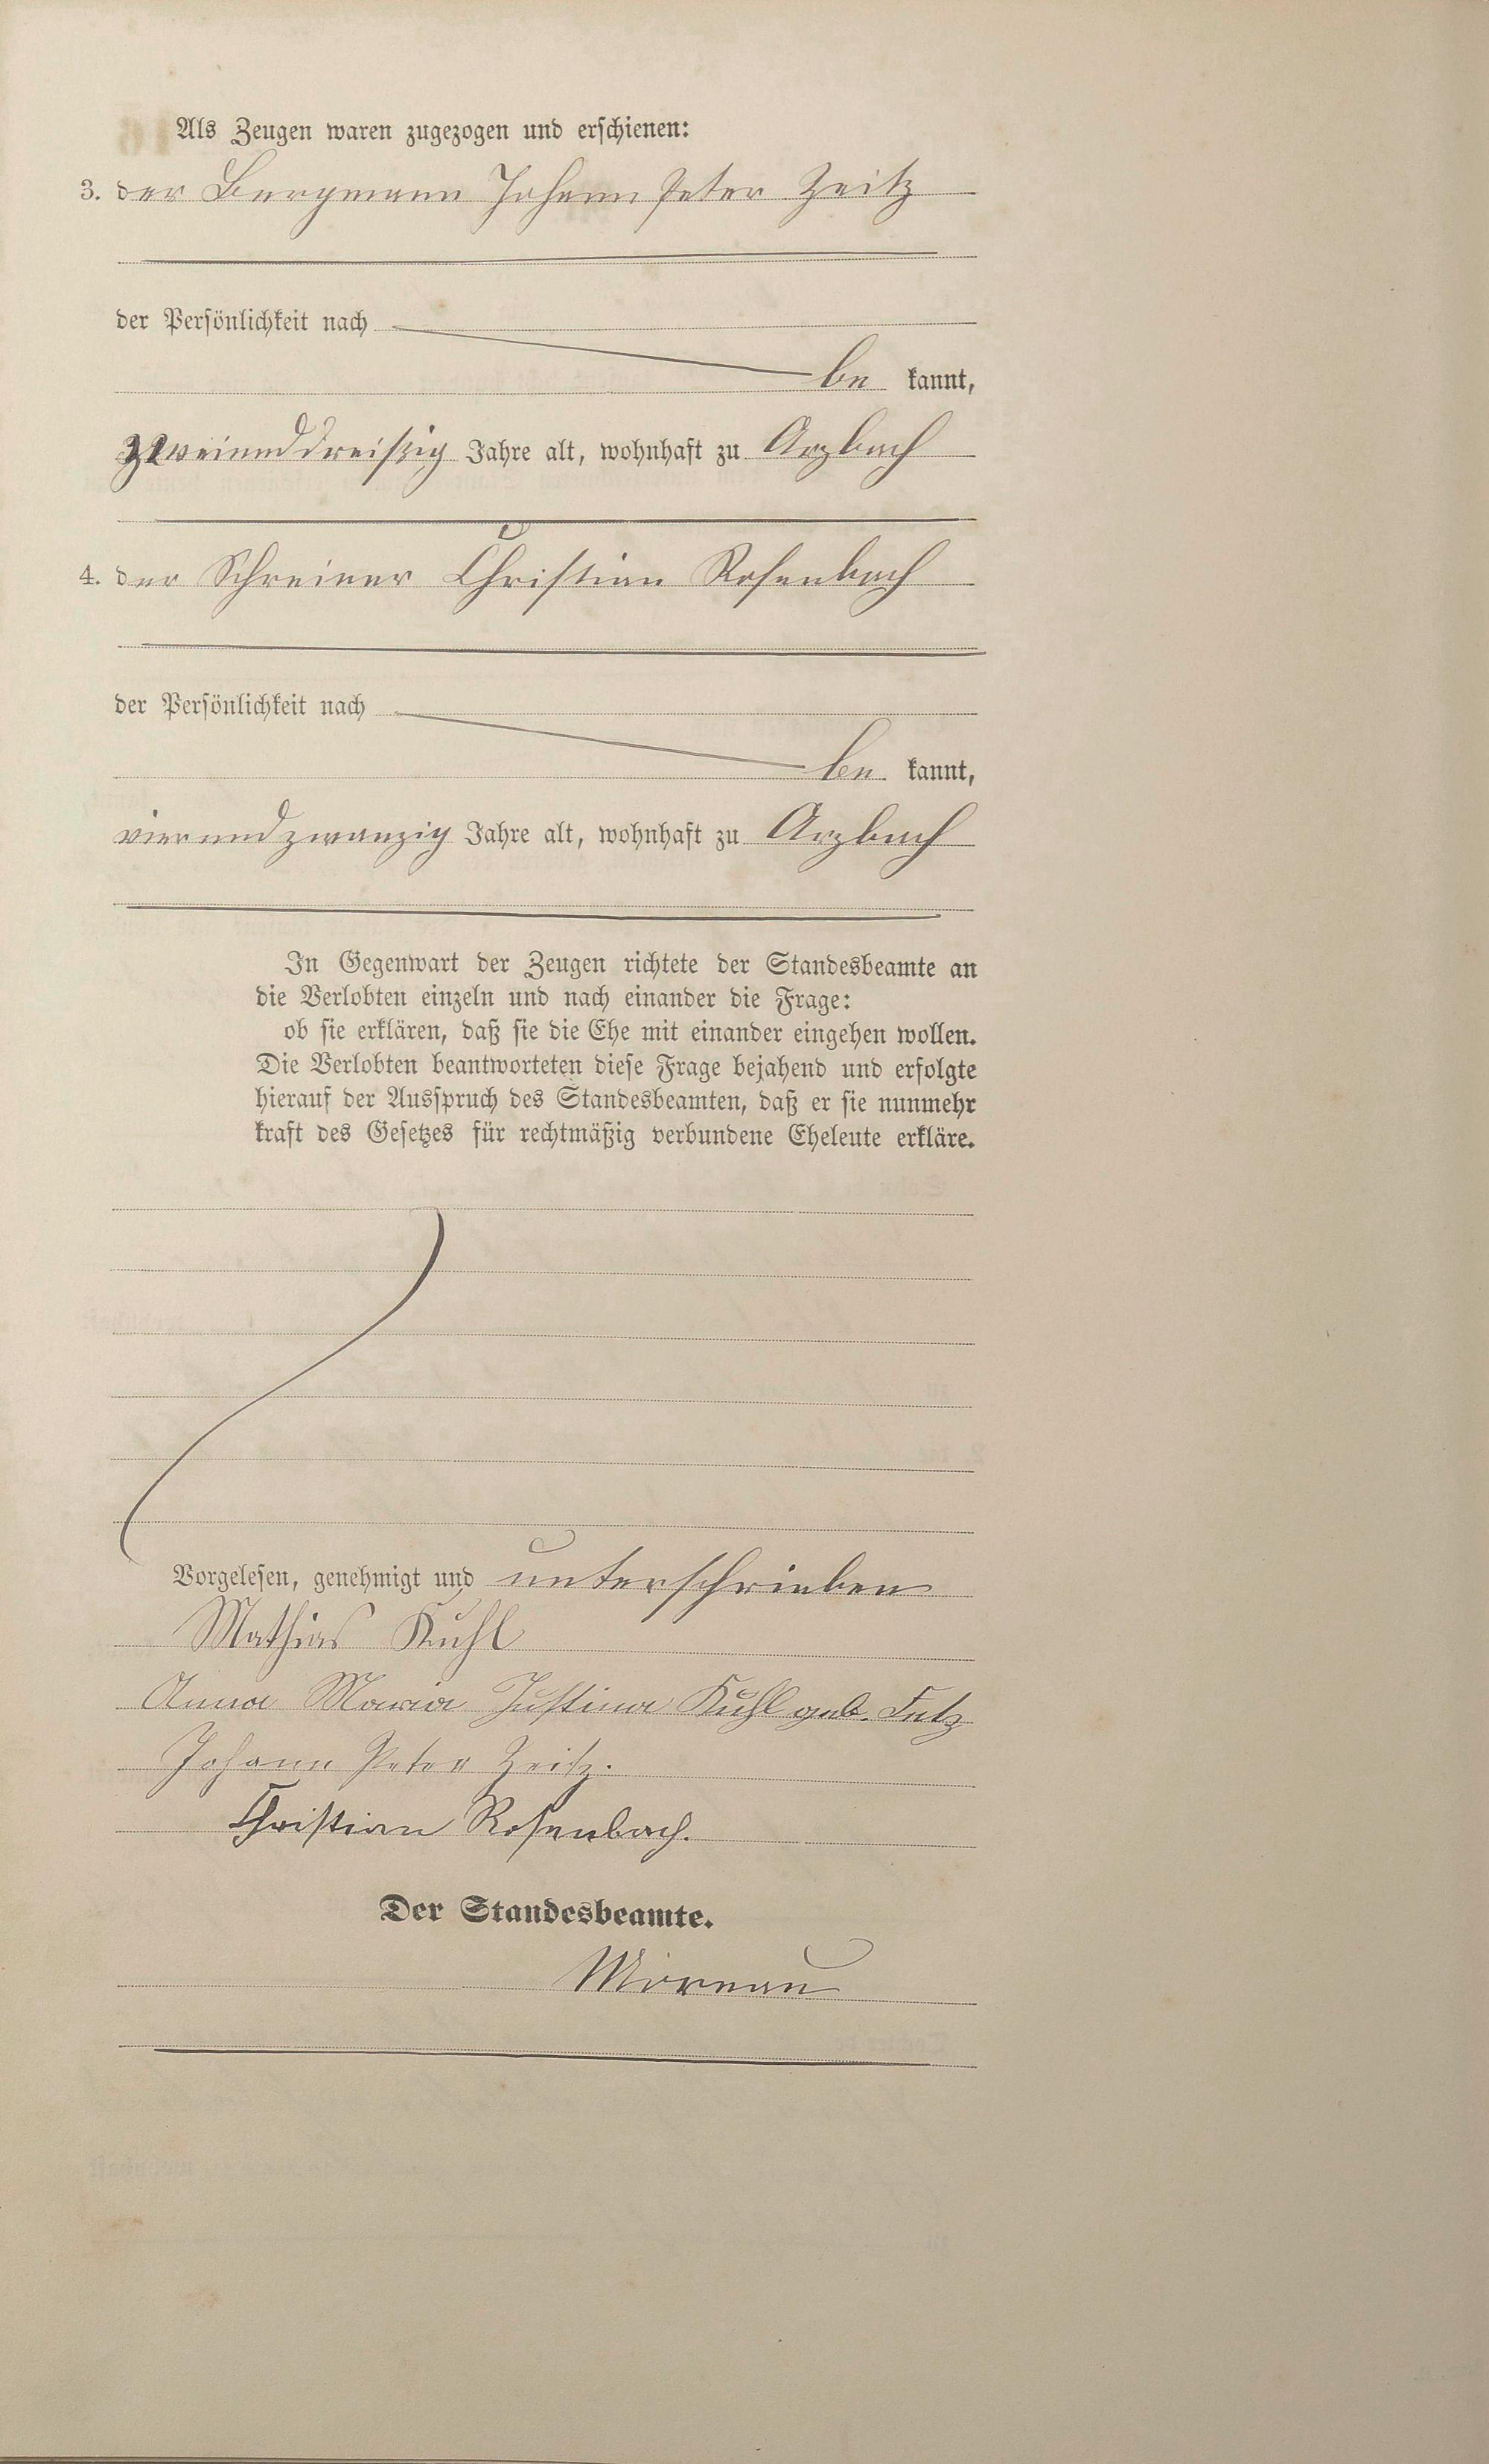 Als Zeugen waren zugezogen und erschienen:
3. der Bergmann Johann Peter Zeitz
der Persönlichkeit nach
be kannt,
zweiunddreißig Jahre alt, wohnhaft zu Arzbach
4. der Schreiner Christian Rosenbach
der Persönlichkeit nach
be kannt,
vierundzwanzig Jahre alt, wohnhaft zu Arzbach
In Gegenwart der Zeugen richtete der Standesbeamte an
die Verlobten einzeln und nach einander die Frage:
ob sie erklären, daß sie die Ehe mit einander eingehen wollen.
Die Verlobten beantworteten diese Frage bejahend und erfolgte
hierauf der Ausspruch des Standesbeamten, daß er sie nunmehr
kraft des Gesetzes für rechtmäßig verbundene Eheleute erkläre.
Vorgelesen, genehmigt und unterschrieben
Mathias Kuhl
Anna Maria Justina Kuhl geb.
Johann Peter Zeitz.
Christian Rosenbach.
Der Standesbeamte.
Moreau